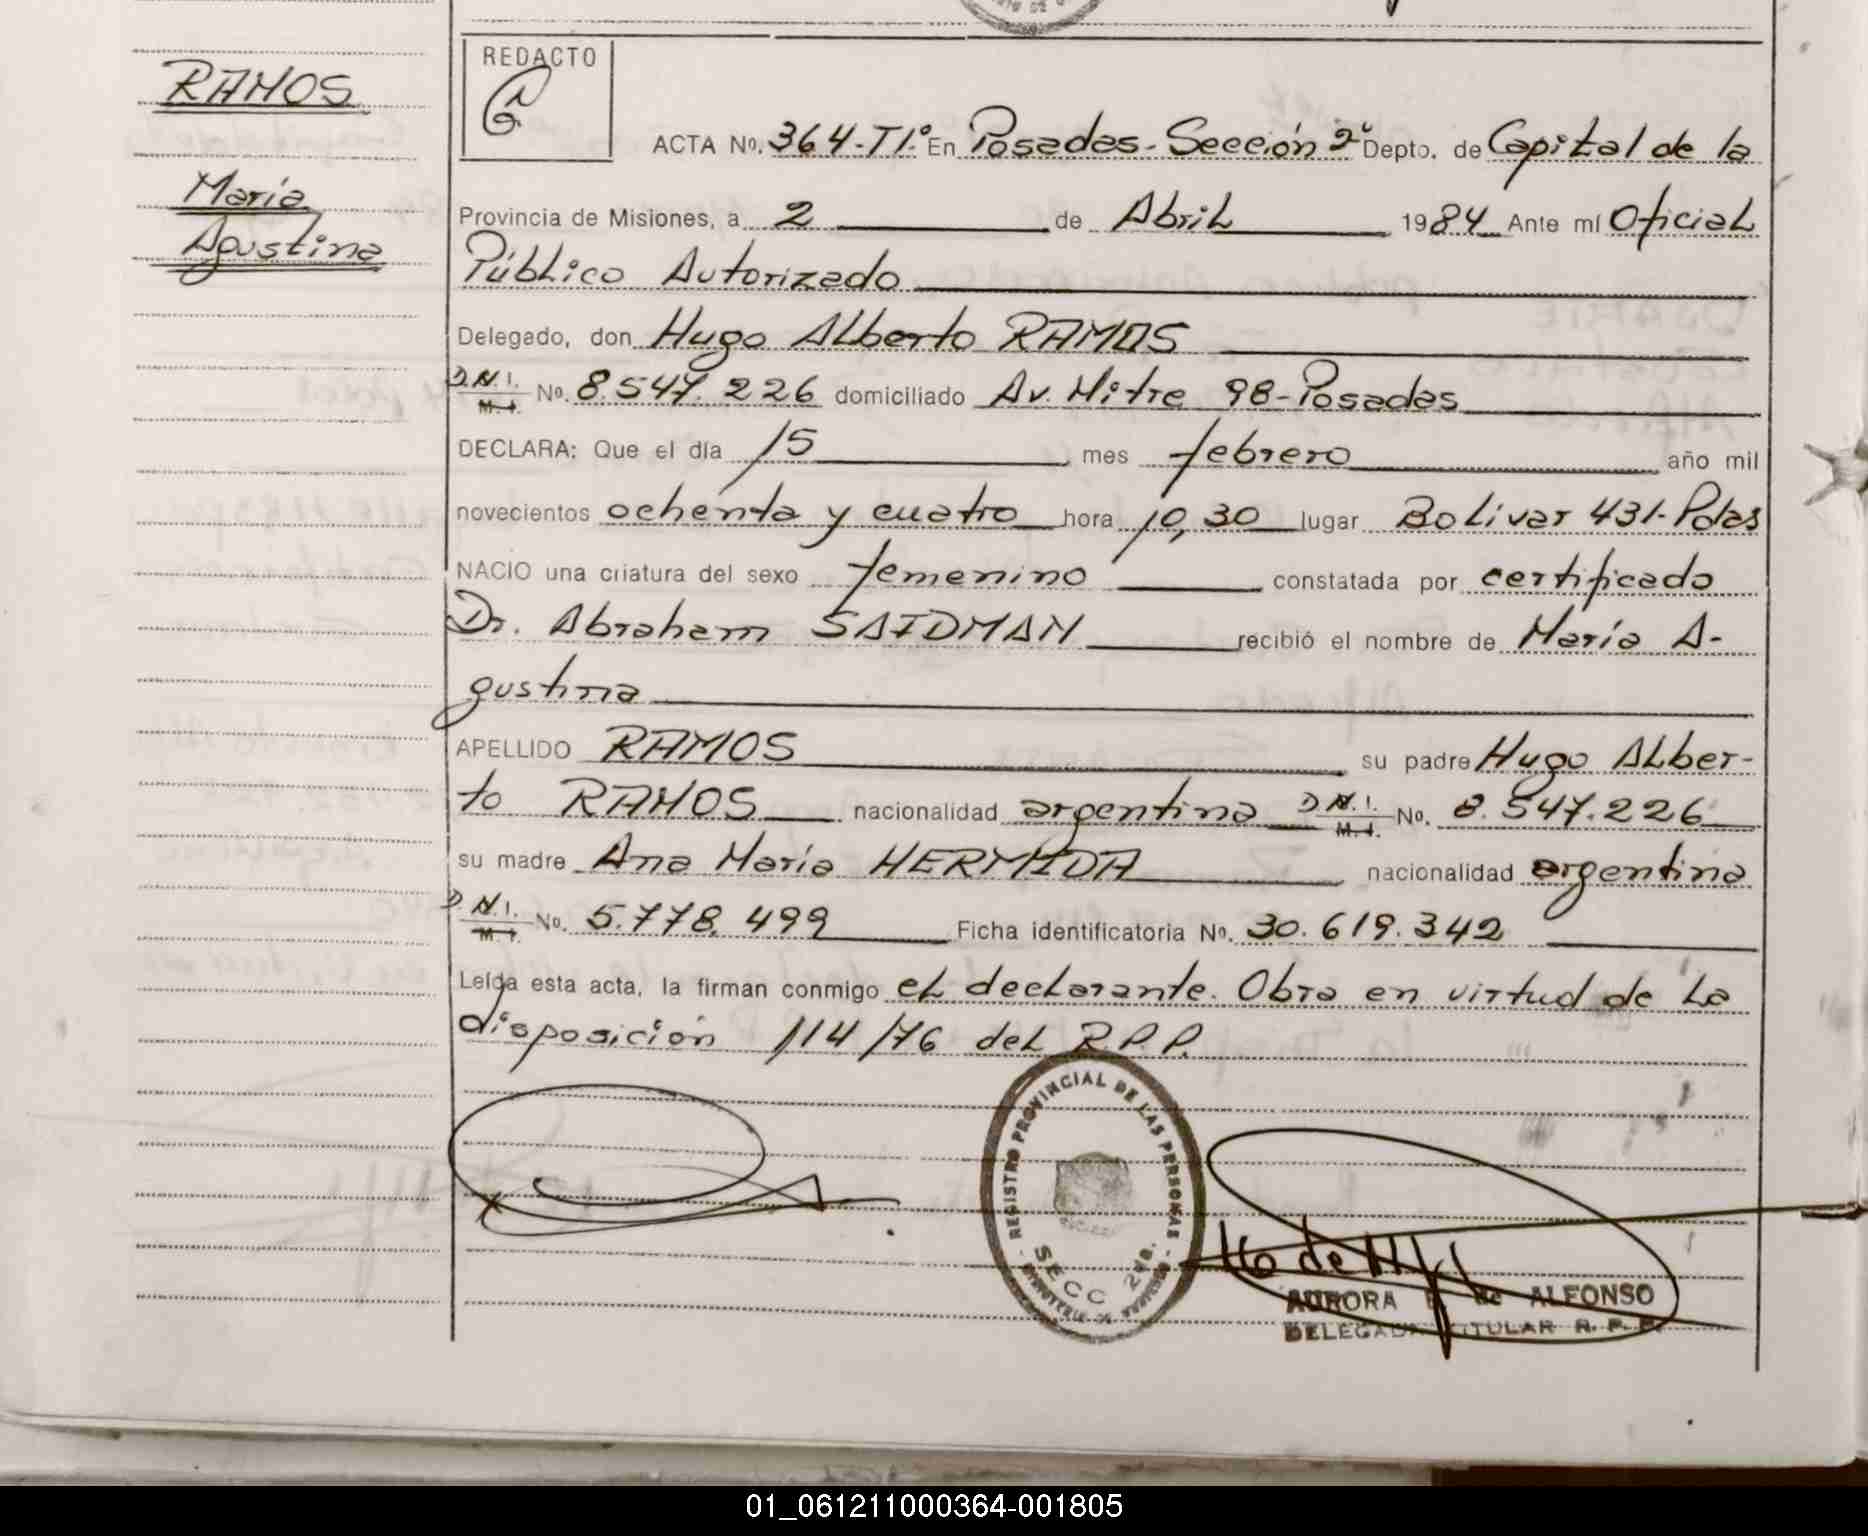 RAMOS
María
Agustina
REDACTO
ACTA No. 364-T1º En Posadas-Sección 2º Depto. de Capital de la
Provincia de Misiones, a 2 de Abril 1984 Ante mí Oficial
Público Autorizado
Delegado, don Hugo Alberto RAMOS
D.N.I. M.I. No. 8.547.226 domiciliado Av. Mitre 98-Posadas
DECLARA: Que el día 15 mes febrero año mil
novecientos ochenta y cuatro hora 10,30 lugar Bolivar 431-Pdas
NACIO una criatura del sexo femenino constatada por certificado
Dr. Abraham SAIDMAN recibió el nombre de María A-
gustina
APELLIDO RAMOS su padre Hugo Alber-
to RAMOS nacionalidad argentina D.N.I. M.I. No. 8.547.226
su madre Ana María HERMIDA nacionalidad argentina
D.N.I. M.I. No. 5.778.499 Ficha identificatoria No. 30.619.342
Leída esta acta, la firman conmigo el declarante. Obra en virtud de la
disposición 114/76 del R.P.P.
REGISTRO PROVINCIAL DE LAS PERSONAS
SECC 2da.
AURORA de ALFONSO
DELEGADA TITULAR R.P.P.
01_061211000364-001805